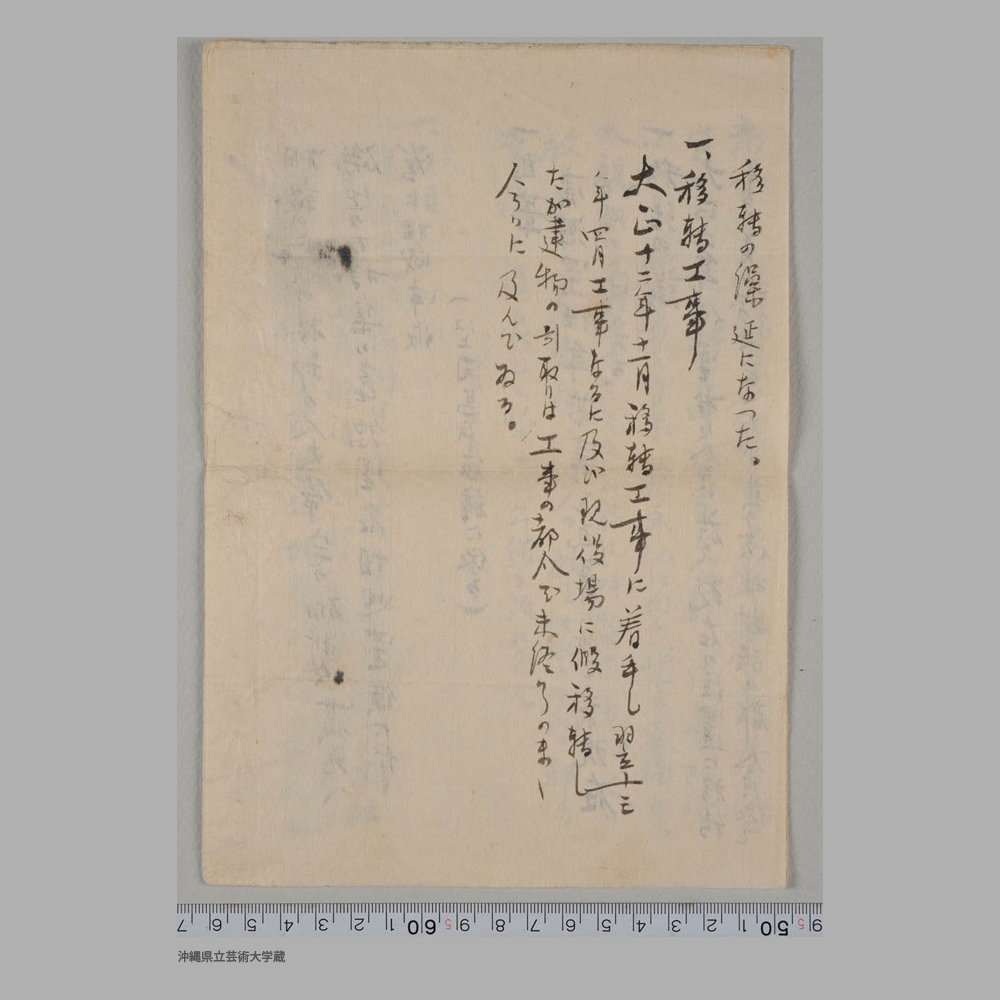 移轉の繰延になつた。
一、移轉工事
大正十二年十一月移轉工事に着手し翌十三
年四月工事なるに及び現役場に假移轉し
たが建物の引取りは工事の都合で未終りのまゝ
今日に及んでゐる。
7 6 5 4 3 2 1 60 9 8 7 6 5 4 3 2 1 50 9
沖縄県立芸術大学蔵